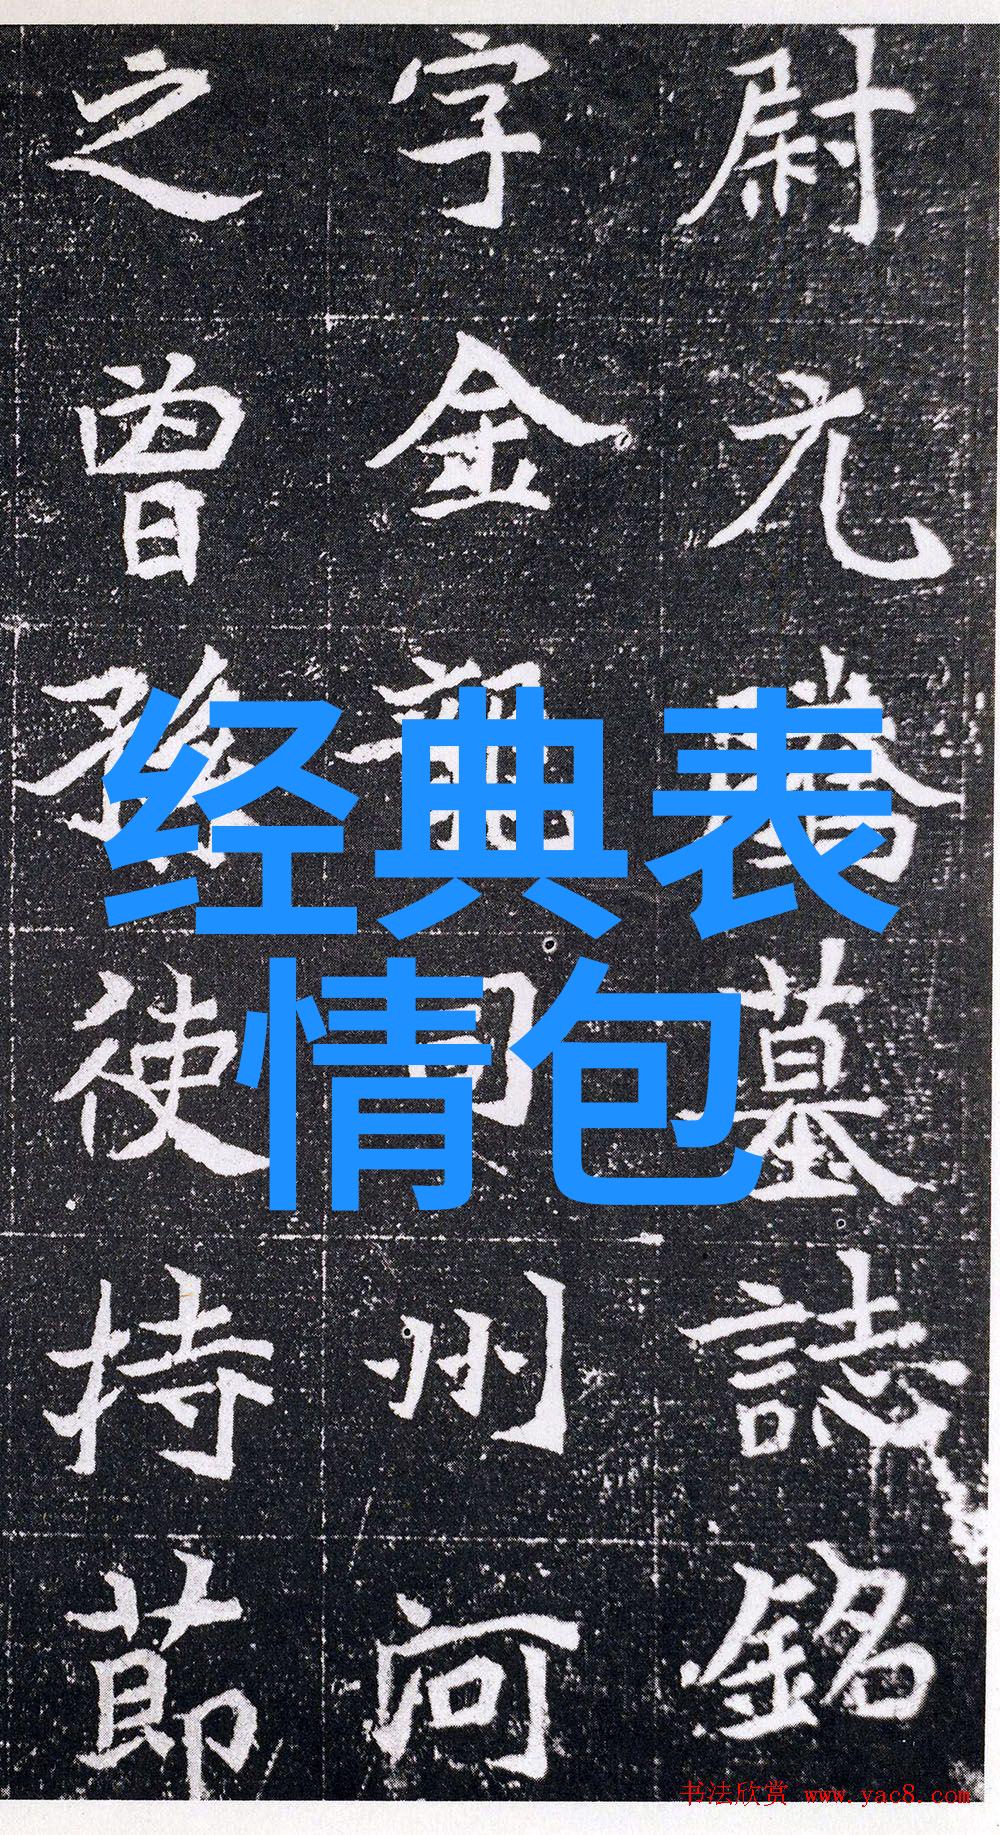 尉元騰墓誌銘
字金龍司州河
之曾孫使持節
经典表
情包
书法欣赏 www.yac8.com